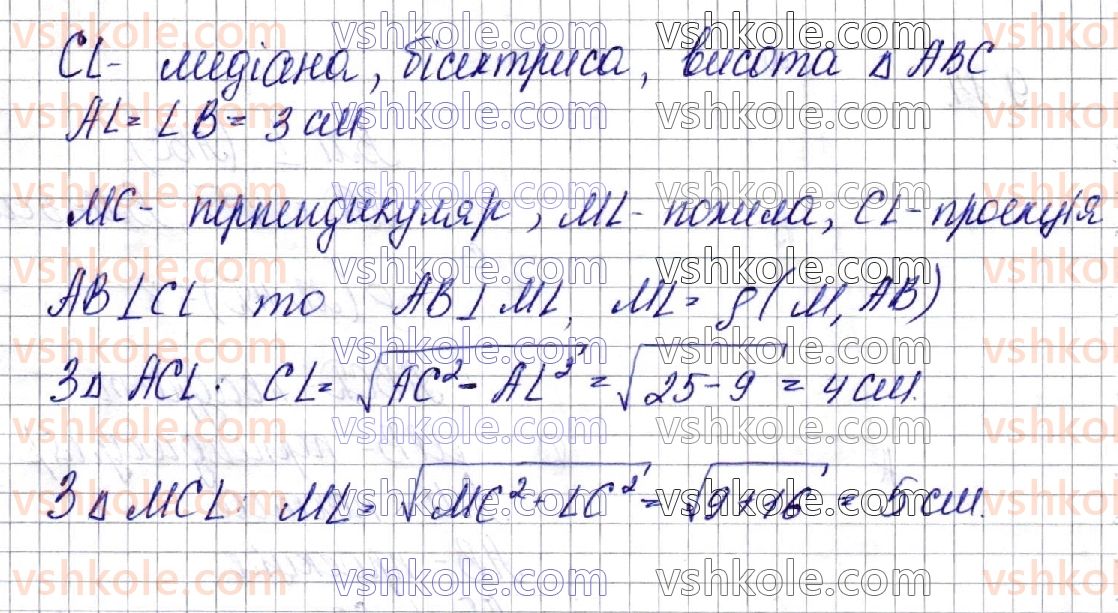 CL - медіана, бісектриса, висота △ ABC
AL = LB = 3 см
MC - перпендикуляр, ML - похила, CL - проекція
AB ⊥ CL то AB ⊥ ML, ML = ρ(M, AB)
З △ ACL: CL = √(AC² - AL²) = √(25 - 9) = 4 см.
З △ MCL: ML = √(MC² + LC²) = √(9 + 16) = 5 см.
vshkole.com